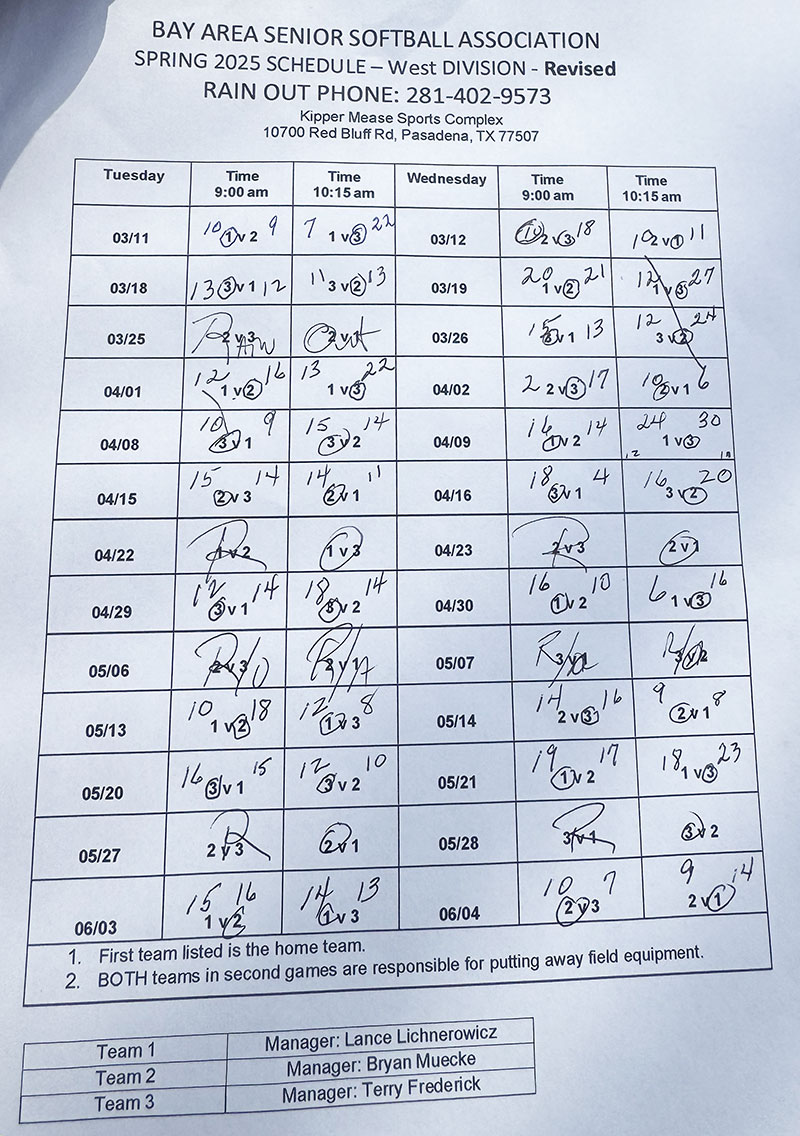 BAY AREA SENIOR SOFTBALL ASSOCIATION
SPRING 2025 SCHEDULE – West DIVISION - Revised
RAIN OUT PHONE: 281-402-9573
Kipper Mease Sports Complex
10700 Red Bluff Rd, Pasadena, TX 77507
Tuesday Time 9:00 am Time 10:15 am Wednesday Time 9:00 am Time 10:15 am
03/11 10 1 v 2 9 7 1 v 3 22 03/12 2 v 3 18 10 2 v 1 11
03/18 13 3 v 1 12 11 3 v 2 13 03/19 20 1 v 2 21 12 1 v 3 27
03/25 Rain 2 v 3 Out 2 v 1 03/26 15 3 v 1 13 12 3 v 2 24
04/01 12 1 v 2 16 13 1 v 3 22 04/02 2 2 v 3 17 10 2 v 1 6
04/08 10 3 v 1 9 15 3 v 2 14 04/09 16 1 v 2 14 24 1 v 3 30
04/15 15 2 v 3 14 14 2 v 1 11 04/16 18 3 v 1 4 16 3 v 2 20
04/22 R 1 v 2 1 v 3 04/23 R 2 v 3 2 v 1
04/29 12 3 v 1 14 18 3 v 2 14 04/30 16 1 v 2 10 6 1 v 3 16
05/06 R/O 2 v 3 2 v 1 05/07 3 v 1 3 v 2
05/13 10 1 v 2 18 12 1 v 3 8 05/14 14 2 v 3 16 9 2 v 1 8
05/20 16 3 v 1 15 12 3 v 2 10 05/21 19 1 v 2 17 18 1 v 3 23
05/27 R 2 v 3 2 v 1 05/28 R 3 v 1 3 v 2
06/03 15 1 v 2 16 14 1 v 3 13 06/04 10 2 v 3 7 9 2 v 1 14
1. First team listed is the home team.
2. BOTH teams in second games are responsible for putting away field equipment.
Team 1 Manager: Lance Lichnerowicz
Team 2 Manager: Bryan Muecke
Team 3 Manager: Terry Frederick